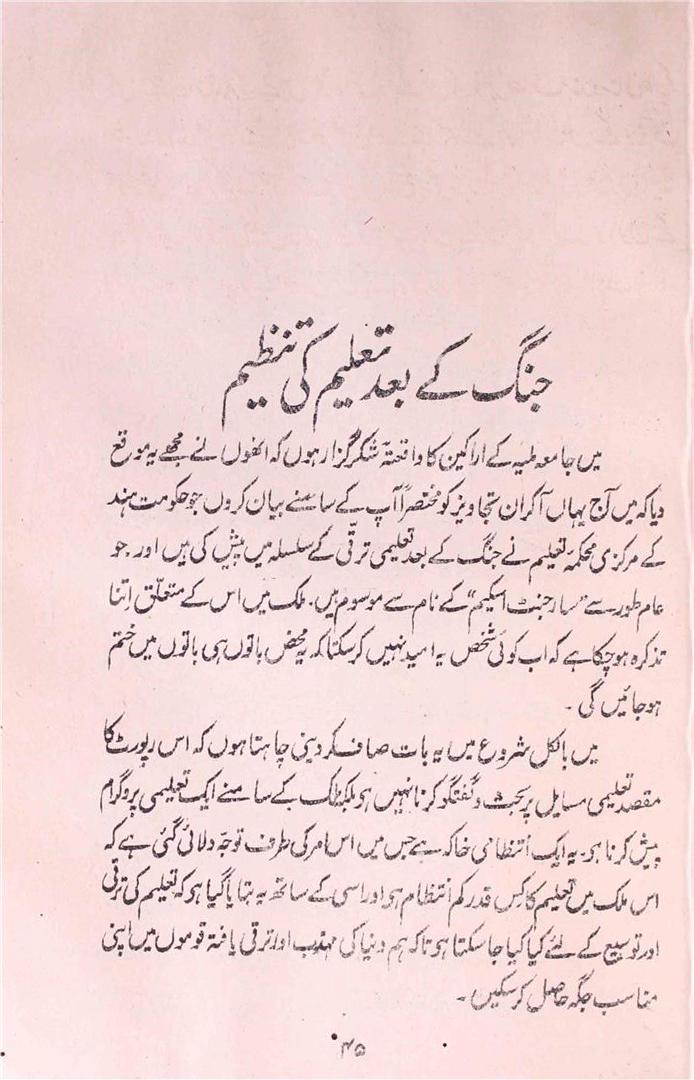 جنگ کے بعد تعلیم کی تنظیم
میں جامعہ ملیہ کے اراکین کا واقعتہً شکرگزار ہوں کہ انھوں نے مجھے یہ موقع
دیا کہ میں آج یہاں آکر ان تجاویز کو مختصراً آپ کے سامنے بیان کروں جو حکومت ہند
کے مرکزی محکمۂ تعلیم نے جنگ کے بعد تعلیمی ترقی کے سلسلہ میں پیش کی ہیں اور جو
عام طور سے "سارجنٹ اسکیم" کے نام سے موسوم ہیں۔ ملک میں اس کے متعلق اتنا
تذکرہ ہوچکا ہے کہ اب کوئی شخص یہ امید نہیں کرسکتا کہ یہ محض باتوں ہی باتوں میں ختم
ہوجائیں گی۔
میں بالکل شروع میں یہ بات صاف کردینی چاہتا ہوں کہ اس رپورٹ کا
مقصد تعلیمی مسایل پر بحث و گفتگو کرنا نہیں ہو بلکہ ملک کے سامنے ایک تعلیمی پروگرام
پیش کرنا ہو۔ یہ ایک انتظامی خاکہ ہے جس میں اس امر کی طرف توجہ دلائی گئی ہے کہ
اس ملک میں تعلیم کا کس قدر کم انتظام ہو اور اسی کے ساتھ یہ بتایا گیا ہو کہ تعلیم کی ترقی
اور توسیع کے لئے کیا کیا جاسکتا ہو تاکہ ہم دنیا کی مہذب اور ترقی یافتہ قوموں میں اپنی
مناسب جگہ حاصل کرسکیں۔